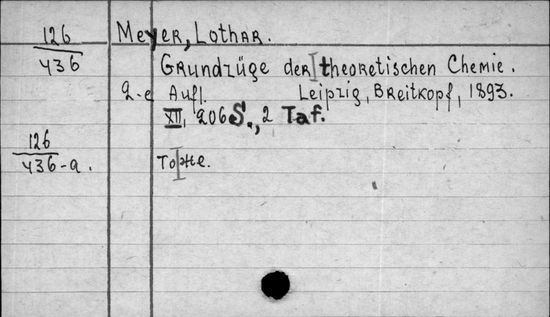 126 Meyer, Lothar.
436 Grundzüge der theoretischen Chemie.
2-e Aufl. Leipzig, Breitkopf, 1893.
XII, 206 S., 2 Taf.
126
436-a. То же.